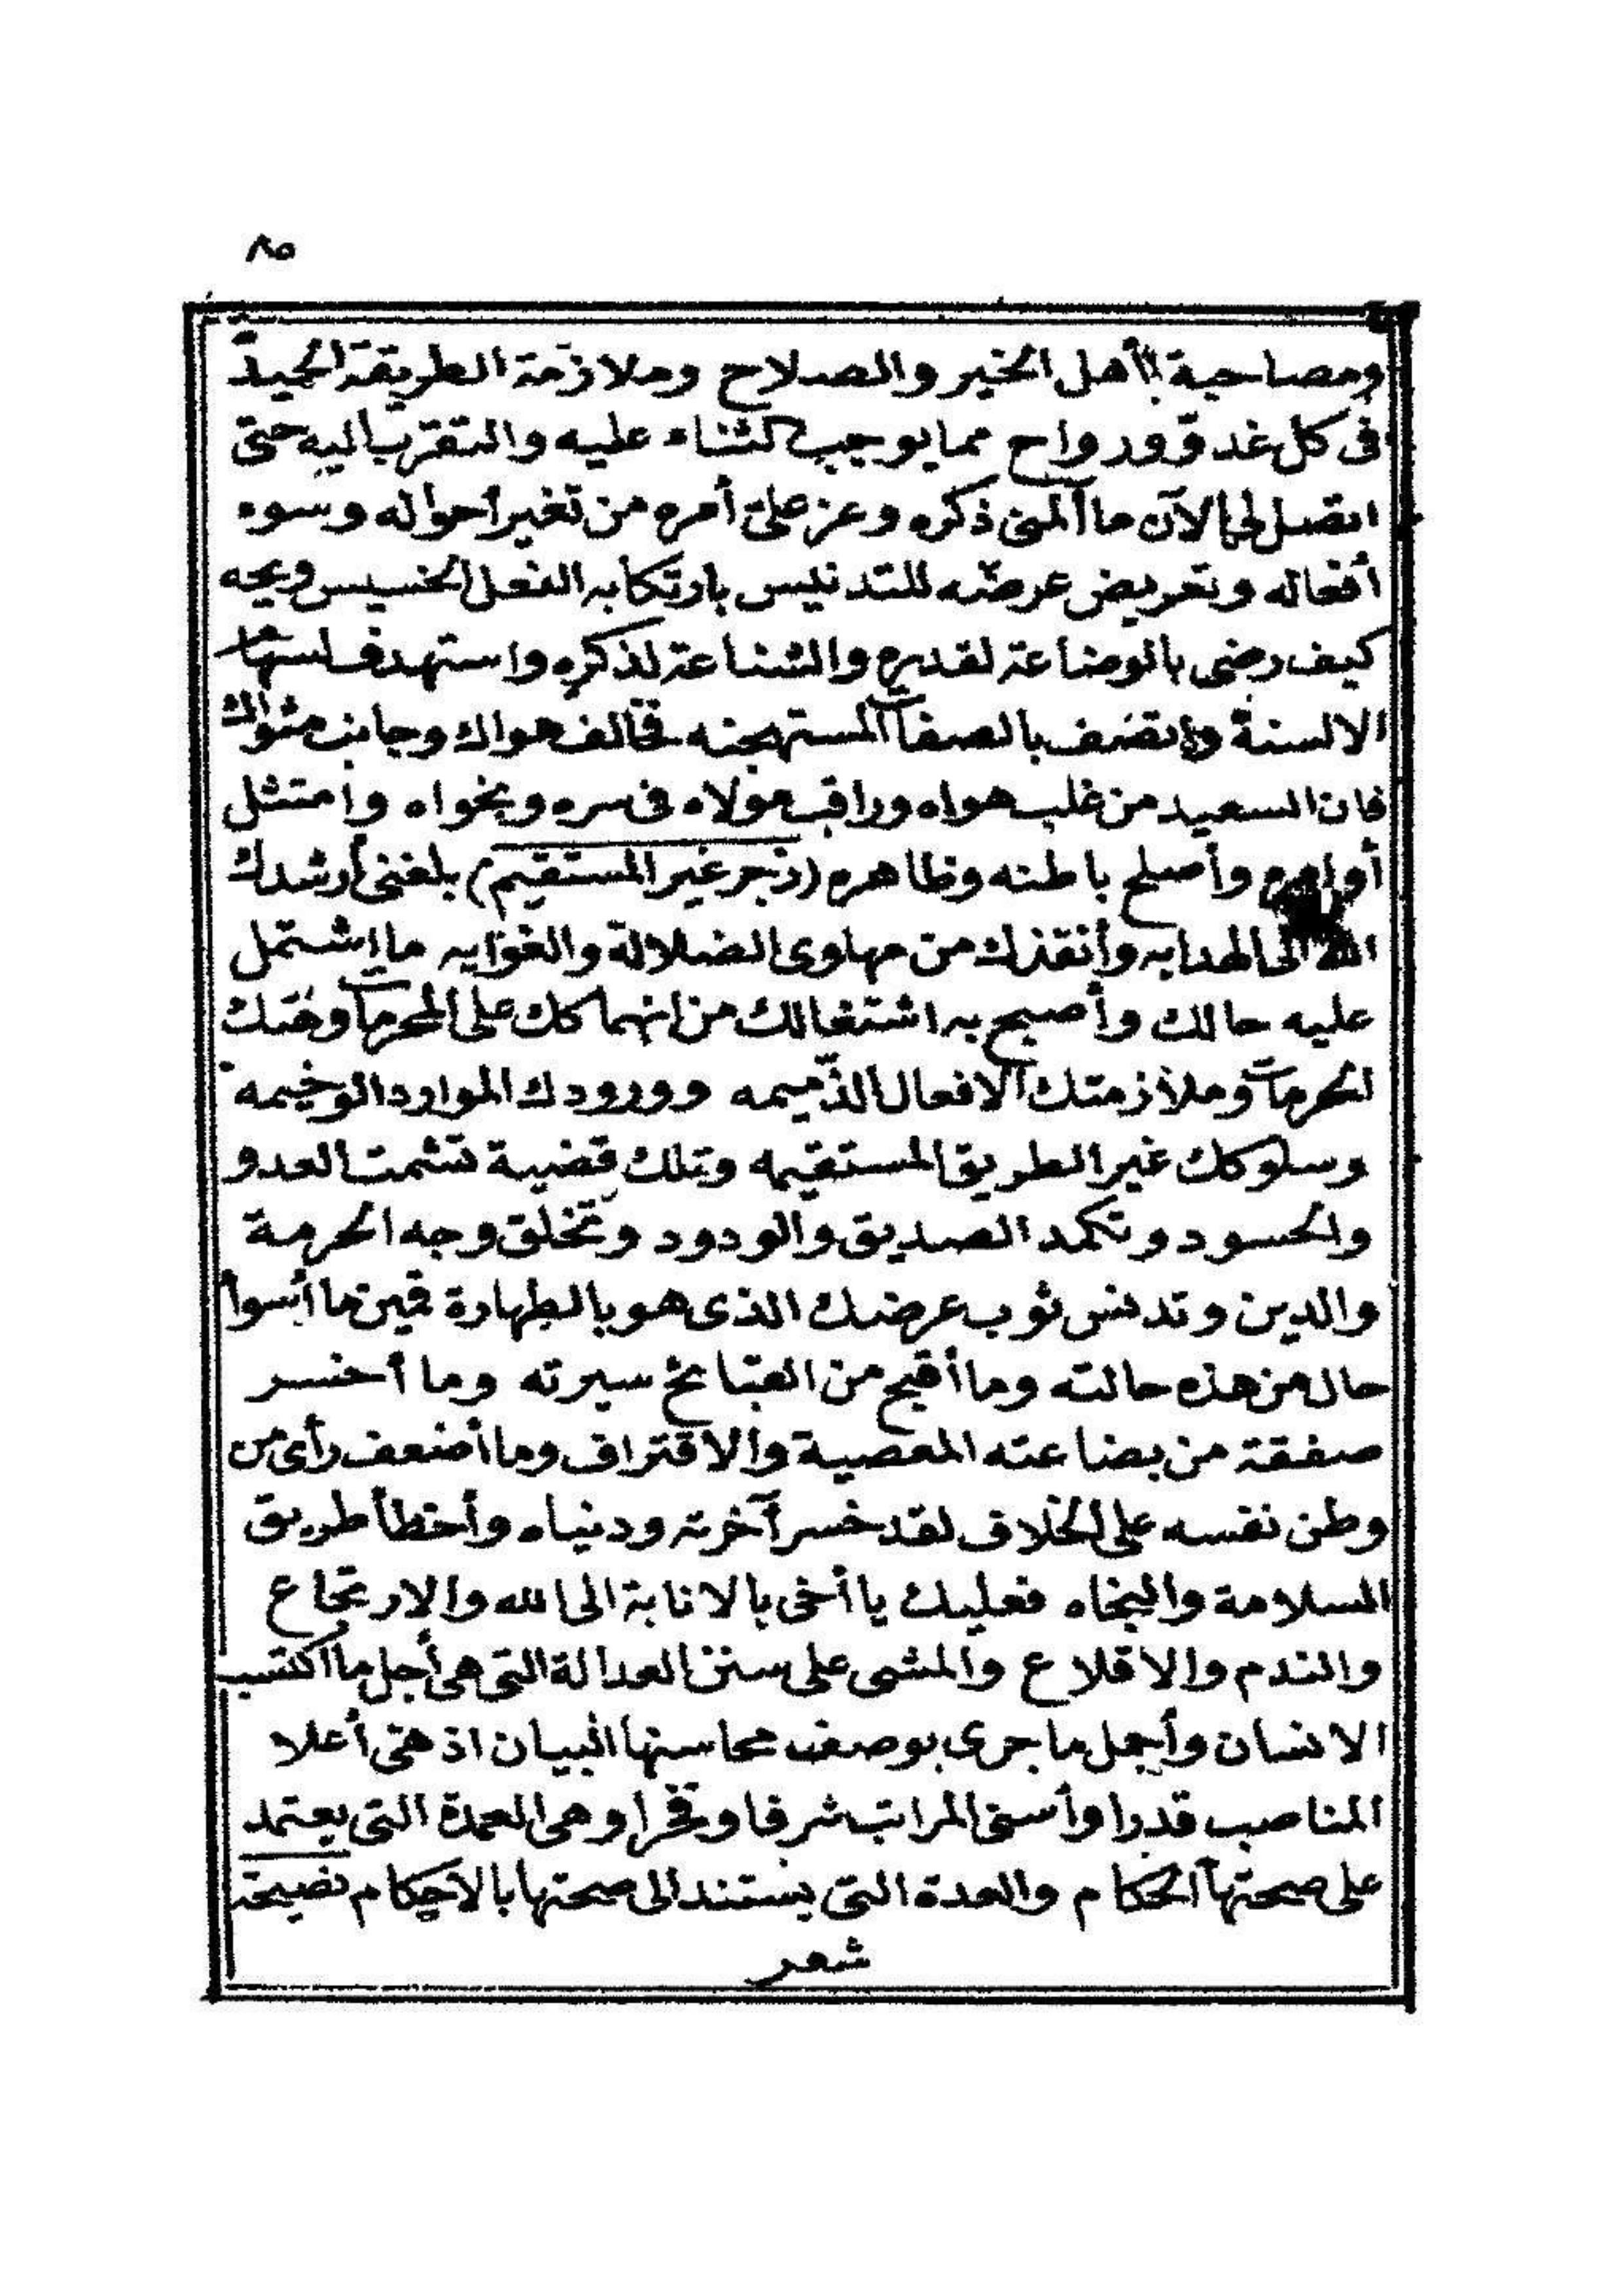 ٨٥
ومصاحبة أهل الخير والصلاح وملازمة الطريقة الحميدة
في كل غدو ورواح مما يوجب الثناء عليه والتقرب اليه حتى
اتصل لى الآن ما آلمنى ذكره وعز على أمره من تغير أحواله وسوء
أفعاله وتعريض عرضه للتدنيس بارتكابه الفعل الخسيس ويحه
كيف رضى بالوضاعة لقدره والشناعة لذكره واستهدف لسهام
الالسنة واتصف بالصفات المستهجنه فخالف هواك وجانب مثواك
فان السعيد من غلب هواه وراقب مولاه فى سره ونجواه وامتثل
أوامره وأصلح باطنه وظاهره (زجر غير المستقيم) بلغنى أرشدك
الله الى الهدايه وأنقذك من مهاوى الضلالة والغوايه ما اشتمل
عليه حالك وأصبح به اشتغالك من انهماكك على المحرمات وهتك
الحرمات وملازمتك الافعال الذميمه وورودك الموارد الوخيمه
وسلوكك غير الطريق المستقيمه وتلك قضية تشمت العدو
والحسود وتكمد الصديق والودود وتخلق وجه الحرمة
والدين وتدنس ثوب عرضك الذى هو بالطهارة قمين ما أسوأ
حال من هذه حالته وما أقبح من القبائح سيرته وما أخسر
صفقة من بضاعته المعصية والاقتراف وما أضعف رأى من
وطن نفسه على الخلاف لقد خسر آخرته ودنياه وأخطأ طريق
السلامة والنجاه فعليك يا أخى بالانابة الى الله والارتجاع
والندم والاقلاع والمشى على سنن العدالة التى هى أجل ما اكتسب
الانسان وأجمل ما جرى بوصف محاسنها البيان اذ هى أعلا
المناصب قدرا وأسنى المراتب شرفا وفخرا وهى العمدة التى يعتمد
على صحتها الحكام والعدة التى يستند الى صحتها بالاحكام نصيحة
شعر